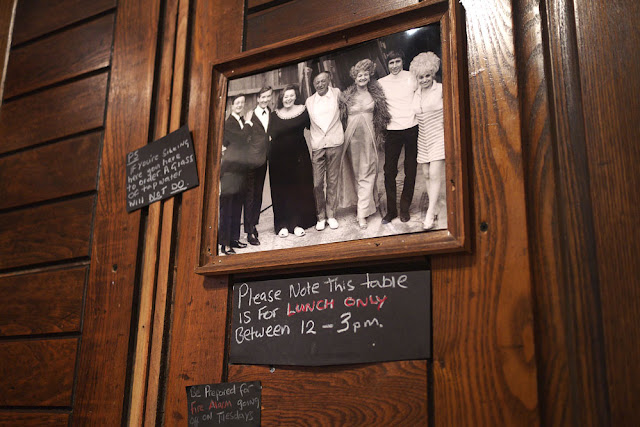 PS
IF YOU'RE SiTTiNG
here you have
to order A GLASS
OF tap water
Will NOT DO.
Please Note this table
is For LUNCH ONLY
Between 12 - 3pm.
Be Prepared for
Fire Alarm going
off on Tuesdays